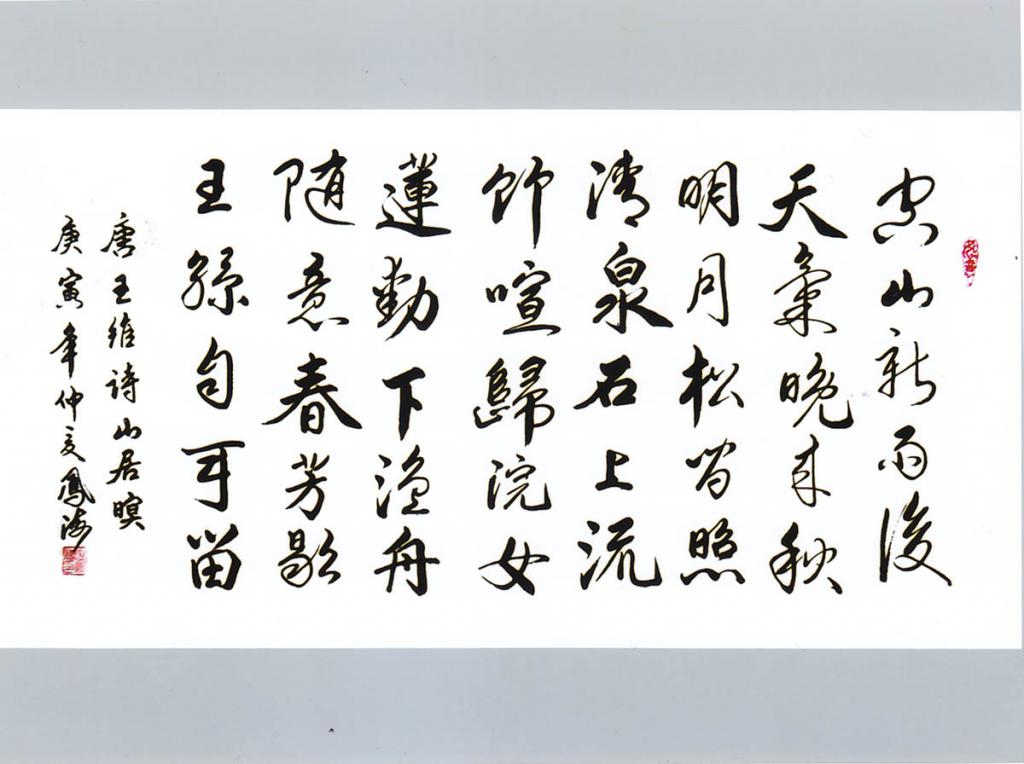 空山新雨後
天氣晚来秋
明月松間照
清泉石上流
竹喧歸浣女
蓮動下漁舟
随意春芳歇
王孫自可留
唐王維詩山居暝
庚寅年仲夏鳳海